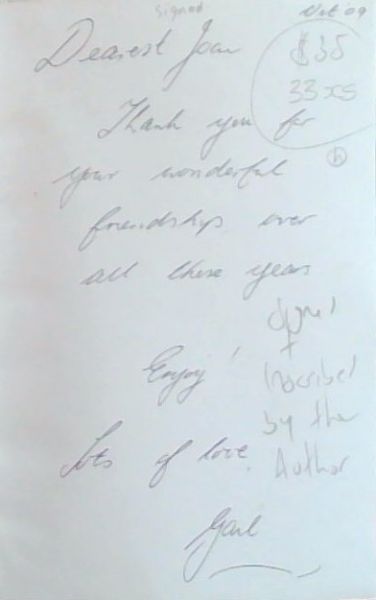 Signed
Oct '09
Dearest Joan
$35
33xs
Thank you for
h
your wonderful
friendship over
all these years
signed
+
Enjoy!
Inscribed
by the
Lots of love
Author
Gail